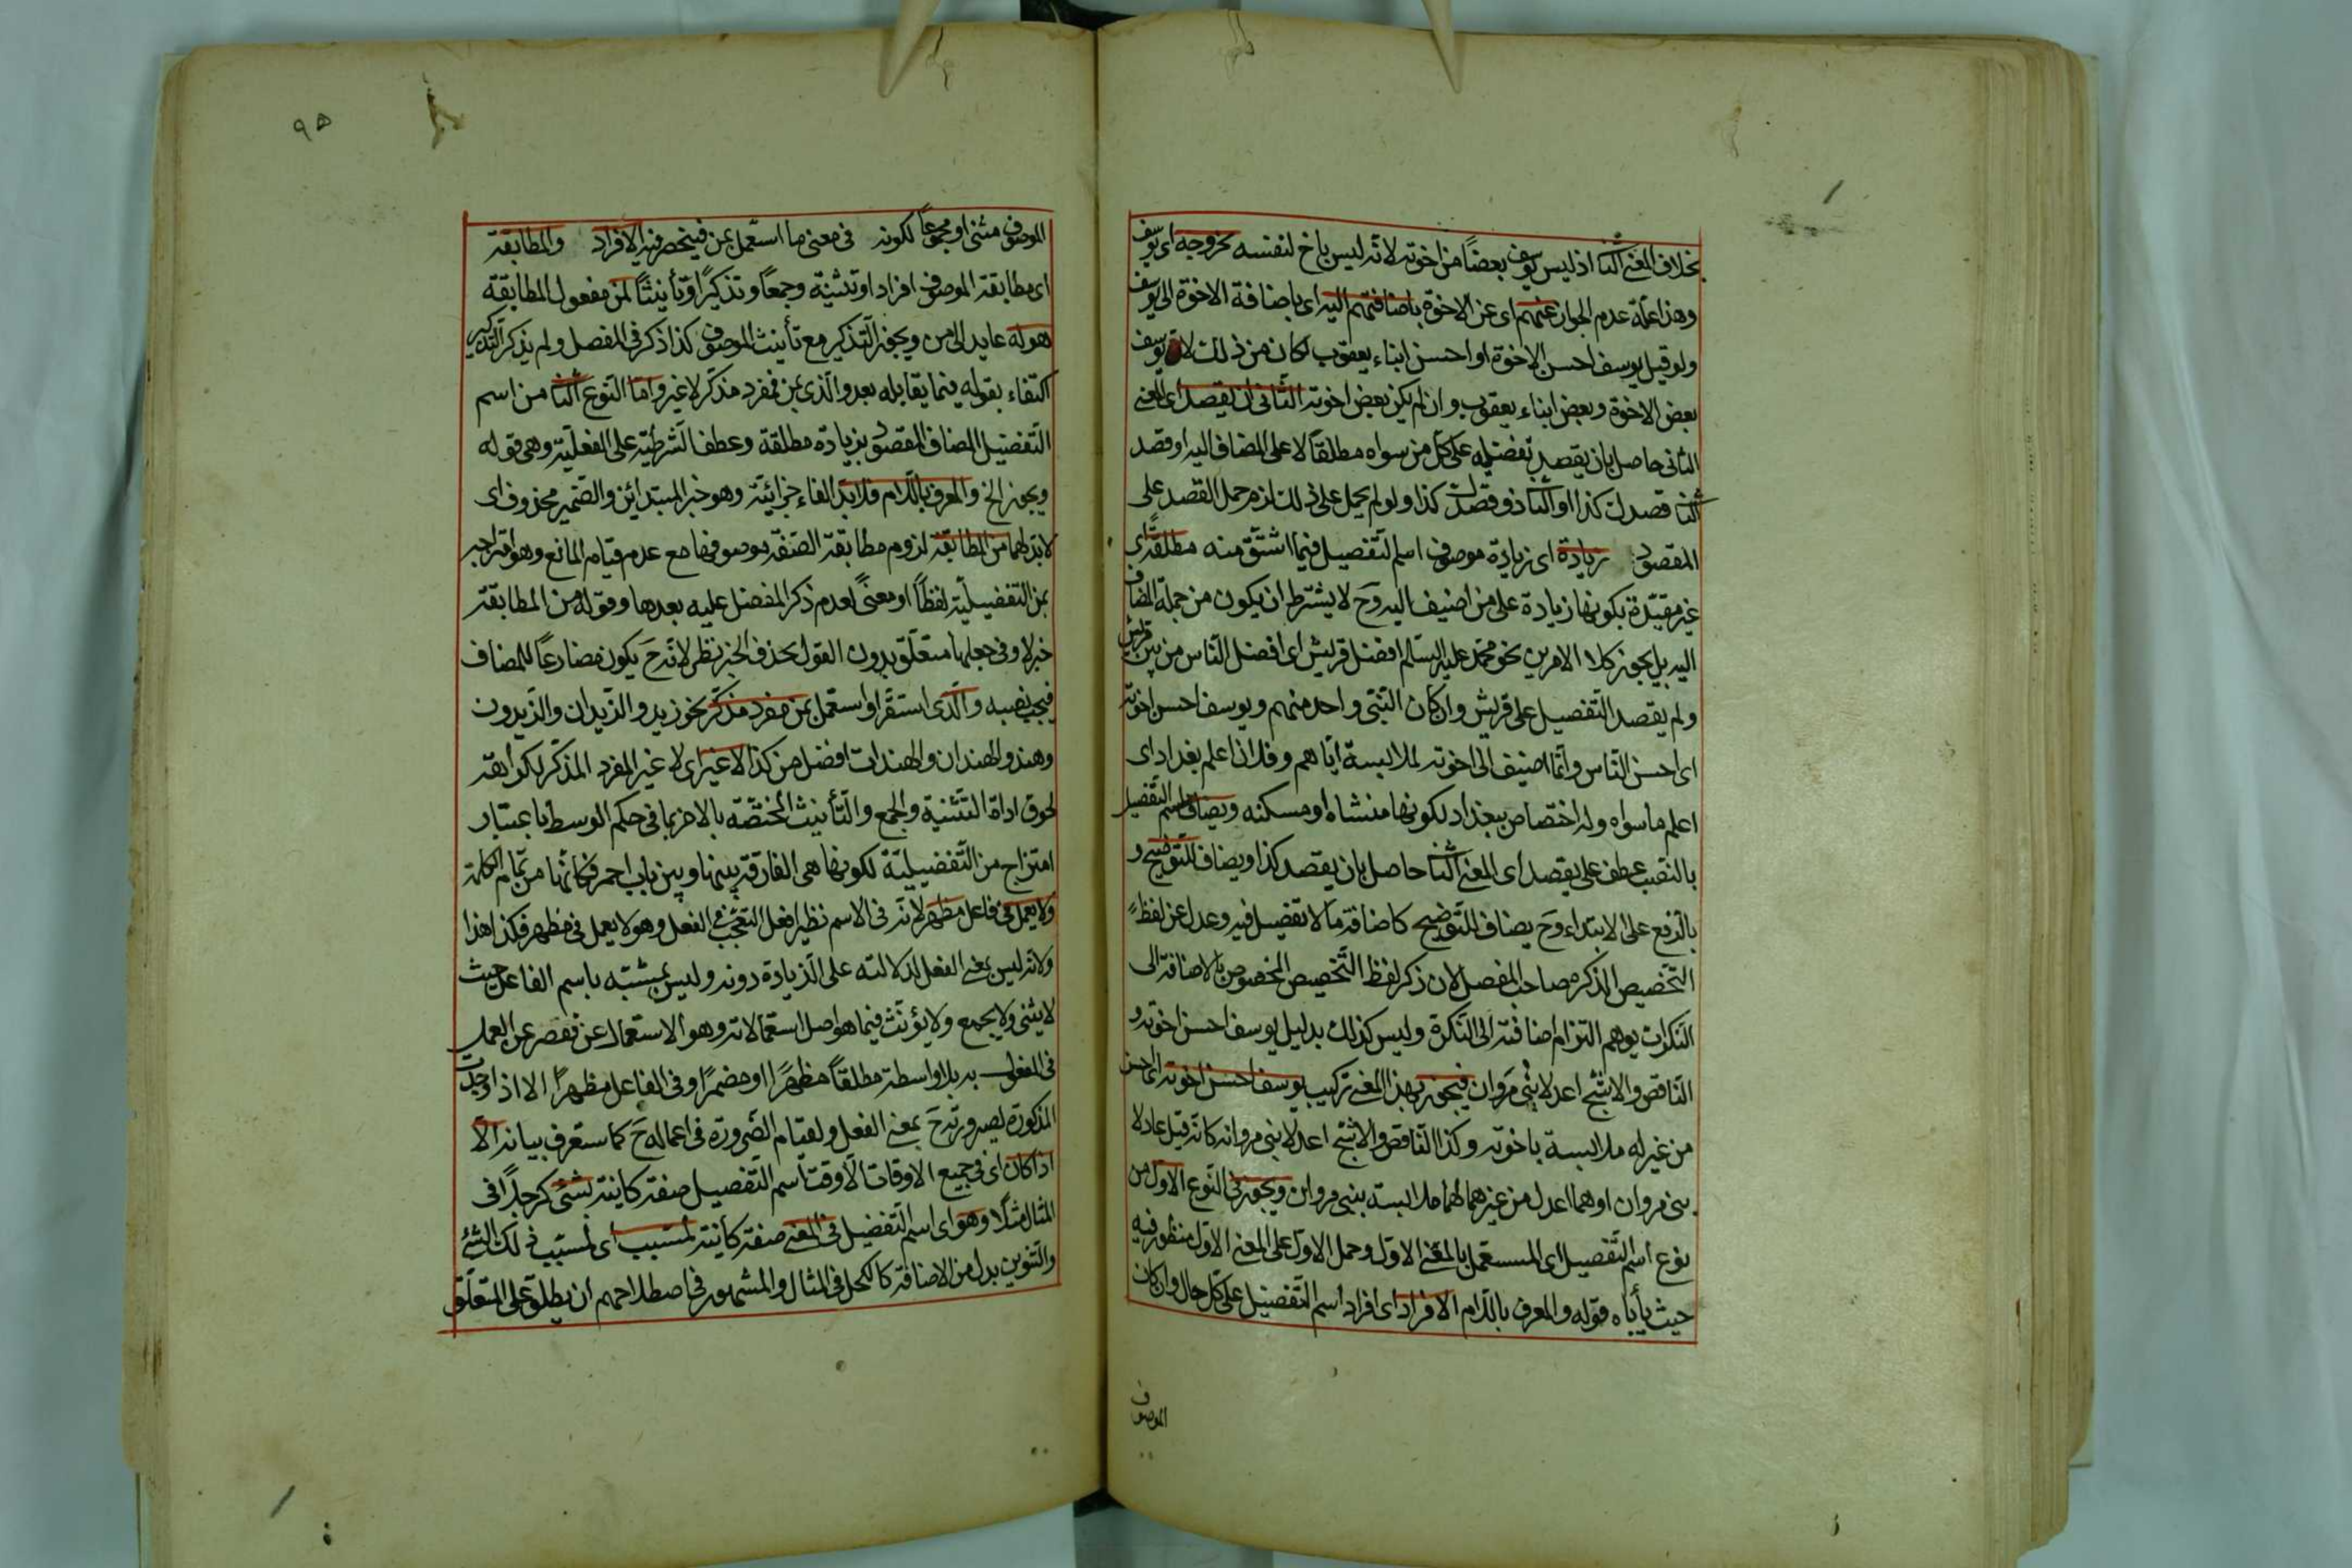 بخلاف المعنى الثانى اذ ليس يوسف بعضًا من اخوته لانه ليس باخ لنفسه لخروجه اى يوسف
وهذا علة عدم الجواز عنهم اى عن الاخوة باضافتهم اليه اى باضافة الاخوة الى يوسف
ولو قيل يوسف احسن الاخوة او احسن ابناء يعقوب لكان من ذلك لان يوسف
بعض الاخوة وبعض ابناء يعقوب وان لم يكن بعض اخوته الثانى ان يقصد اى المعنى
الثانى حاصل بان يقصد تفضيله على كل من سواه مطلقًا لا على المضاف اليه او قصد
الثانى قصدك كذا او الثانى ذو قصدك كذا ولو لم يحمل على ذلك لزم حمل القصد على
المقصود زيادة اى زيادة موصوف اسم التفضيل فيما اشتق منه مطلقة اى
غير مقيدة بكونها زيادة على من اضيف اليه وح لا يشترط ان يكون من جملة المضاف
اليه بل يجوز كلا الامرين نحو محمد عليه السلام افضل قريش اى افضل الناس من بين قريش
ولم يقصد التفضيل على قريش وان كان النبى واحد منهم ويوسف احسن اخوته
اى احسن الناس وانما اضيف الى اخوته لملابسة اياهم وفلان اعلم بغداد اى
اعلم ما سواه وله اختصاص ببغداد لكونها منشاه او مسكنه ويضاف اسم التفضيل
بالنصب عطف على يقصد اى المعنى الثانى حاصل بان يقصد كذا ويضاف للتوضيح و
بالرفع على الابتداء وح يضاف للتوضيح كاضافة ما لا تفضيل فيه وعدل عن لفظ
التخصيص الذكره صاحب المفصل لان ذكر لفظ التخصيص المخصوص بالاضافة الى
النكرات يوهم التزام اضافته الى النكرة وليس كذلك بدليل يوسف احسن اخوته و
الناقص والاشج اعدلا بنى مروان فيجوز بهذا المعنى تركيب يوسف احسن اخوته اى احسن
من غيره له ملابسة باخوته وكذا الناقص والاشج اعدلا بنى مروان كانه قيل عادلا
بنى مروان او هما اعدل من غيرهما لهما ملابسته ببنى مروان ويجوز فى النوع الاول من
نوع اسم التفضيل اى المستعمل بالمعنى الاول وحمل الاول على المعنى الاول منظور فيه
حيث يأباه قوله والمعرف باللام الافراد اى افراد اسم التفضيل على كل حال وان كان
الموصوف
٩٥
الموصوف مثنى او مجموعًا لكونه فى معنى ما استعمل بمن فينحصر فيه الافراد والمطابقة
اى مطابقة الموصوف افراد او تثنية وجمعًا وتذكيرًا وتأنيثًا لمن مفعول المطابقة
هو له عايد الى من ويجوز التذكير مع تأنيث الموصوف كذا ذكر فى المفصل ولم يذكر التذكير
اكتفاء بقوله فيما يقابله بعد والذى بمن فمفرد مذكر لا غير واما النوع الثانى من اسم
التفضيل المضاف المقصود بزيادة مطلقة وعطف الشرطية على الفعلية وهى قوله
ويجوز الخ والمعرف باللام فلا بد الفاء جزائية وهو خبر المبتدائين والضمير محذوف اى
لابد لهما من المطابقة لزوم مطابقة الصفة موصوفها مع عدم قيام المانع وهو امتزاجه
بمن التفضيلية لفظًا او معنى لعدم ذكر المفضل عليه بعدها وقوله من المطابقة
خبر لا وفى جعلها متعلق بدون القول بحذف الخبر نظر لانه ح يكون مضارعًا للمضاف
فيجب نصبه والذى استقر او استعمل بمن مفرد مذكر نحو زيد والزيدان والزيدون
وهند والهندان والهندات افضل من كذا لا غير اى لا غير المفرد المذكر لكراهة
لحوق اداة التثنية والجمع والتأنيث المختصة بالاخر بما فى حكم الوسط باعتبار
امتزاج من التفضيلية لكونها هى الفارقة بينها وبين باب احمر فكانها من تمام الكلمة
ولا يعمل فى فاعل مظهر لانه فى الاسم نظير افعل التعجب فى الفعل وهو لا يعمل فى مظهر فكذا هذا
ولانه ليس بمعنى الفعل لدلالته على الزيادة دونه وليس بمشبه باسم الفاعل حيث
لا يثنى ولا يجمع ولا يؤنث فيما هو اصل استعمالاته وهو الاستعمال بمن فقصر عن العمل
فى المفعول به بلا واسطة مطلقًا مظهرًا او مضمرًا وفى الفاعل مظهرًا الا اذا وجدت
المذكورة لصيرورته ح بمعنى الفعل ولقيام الضرورة فى اعماله ح كما ستعرف بيانه الا
اذا كان اى فى جميع الاوقات الا وقت اسم التفضيل صفة كاينة لشئ كرجلا فى
المثال مثلًا وهو اى اسم التفضيل فى المعنى صفة كاينة لمسبب اى لمسبب ذلك الشئ
والتنوين بدل من الاضافة كالكحل فى المثال والمشهور فى اصطلاحهم ان يطلق على المتعلق